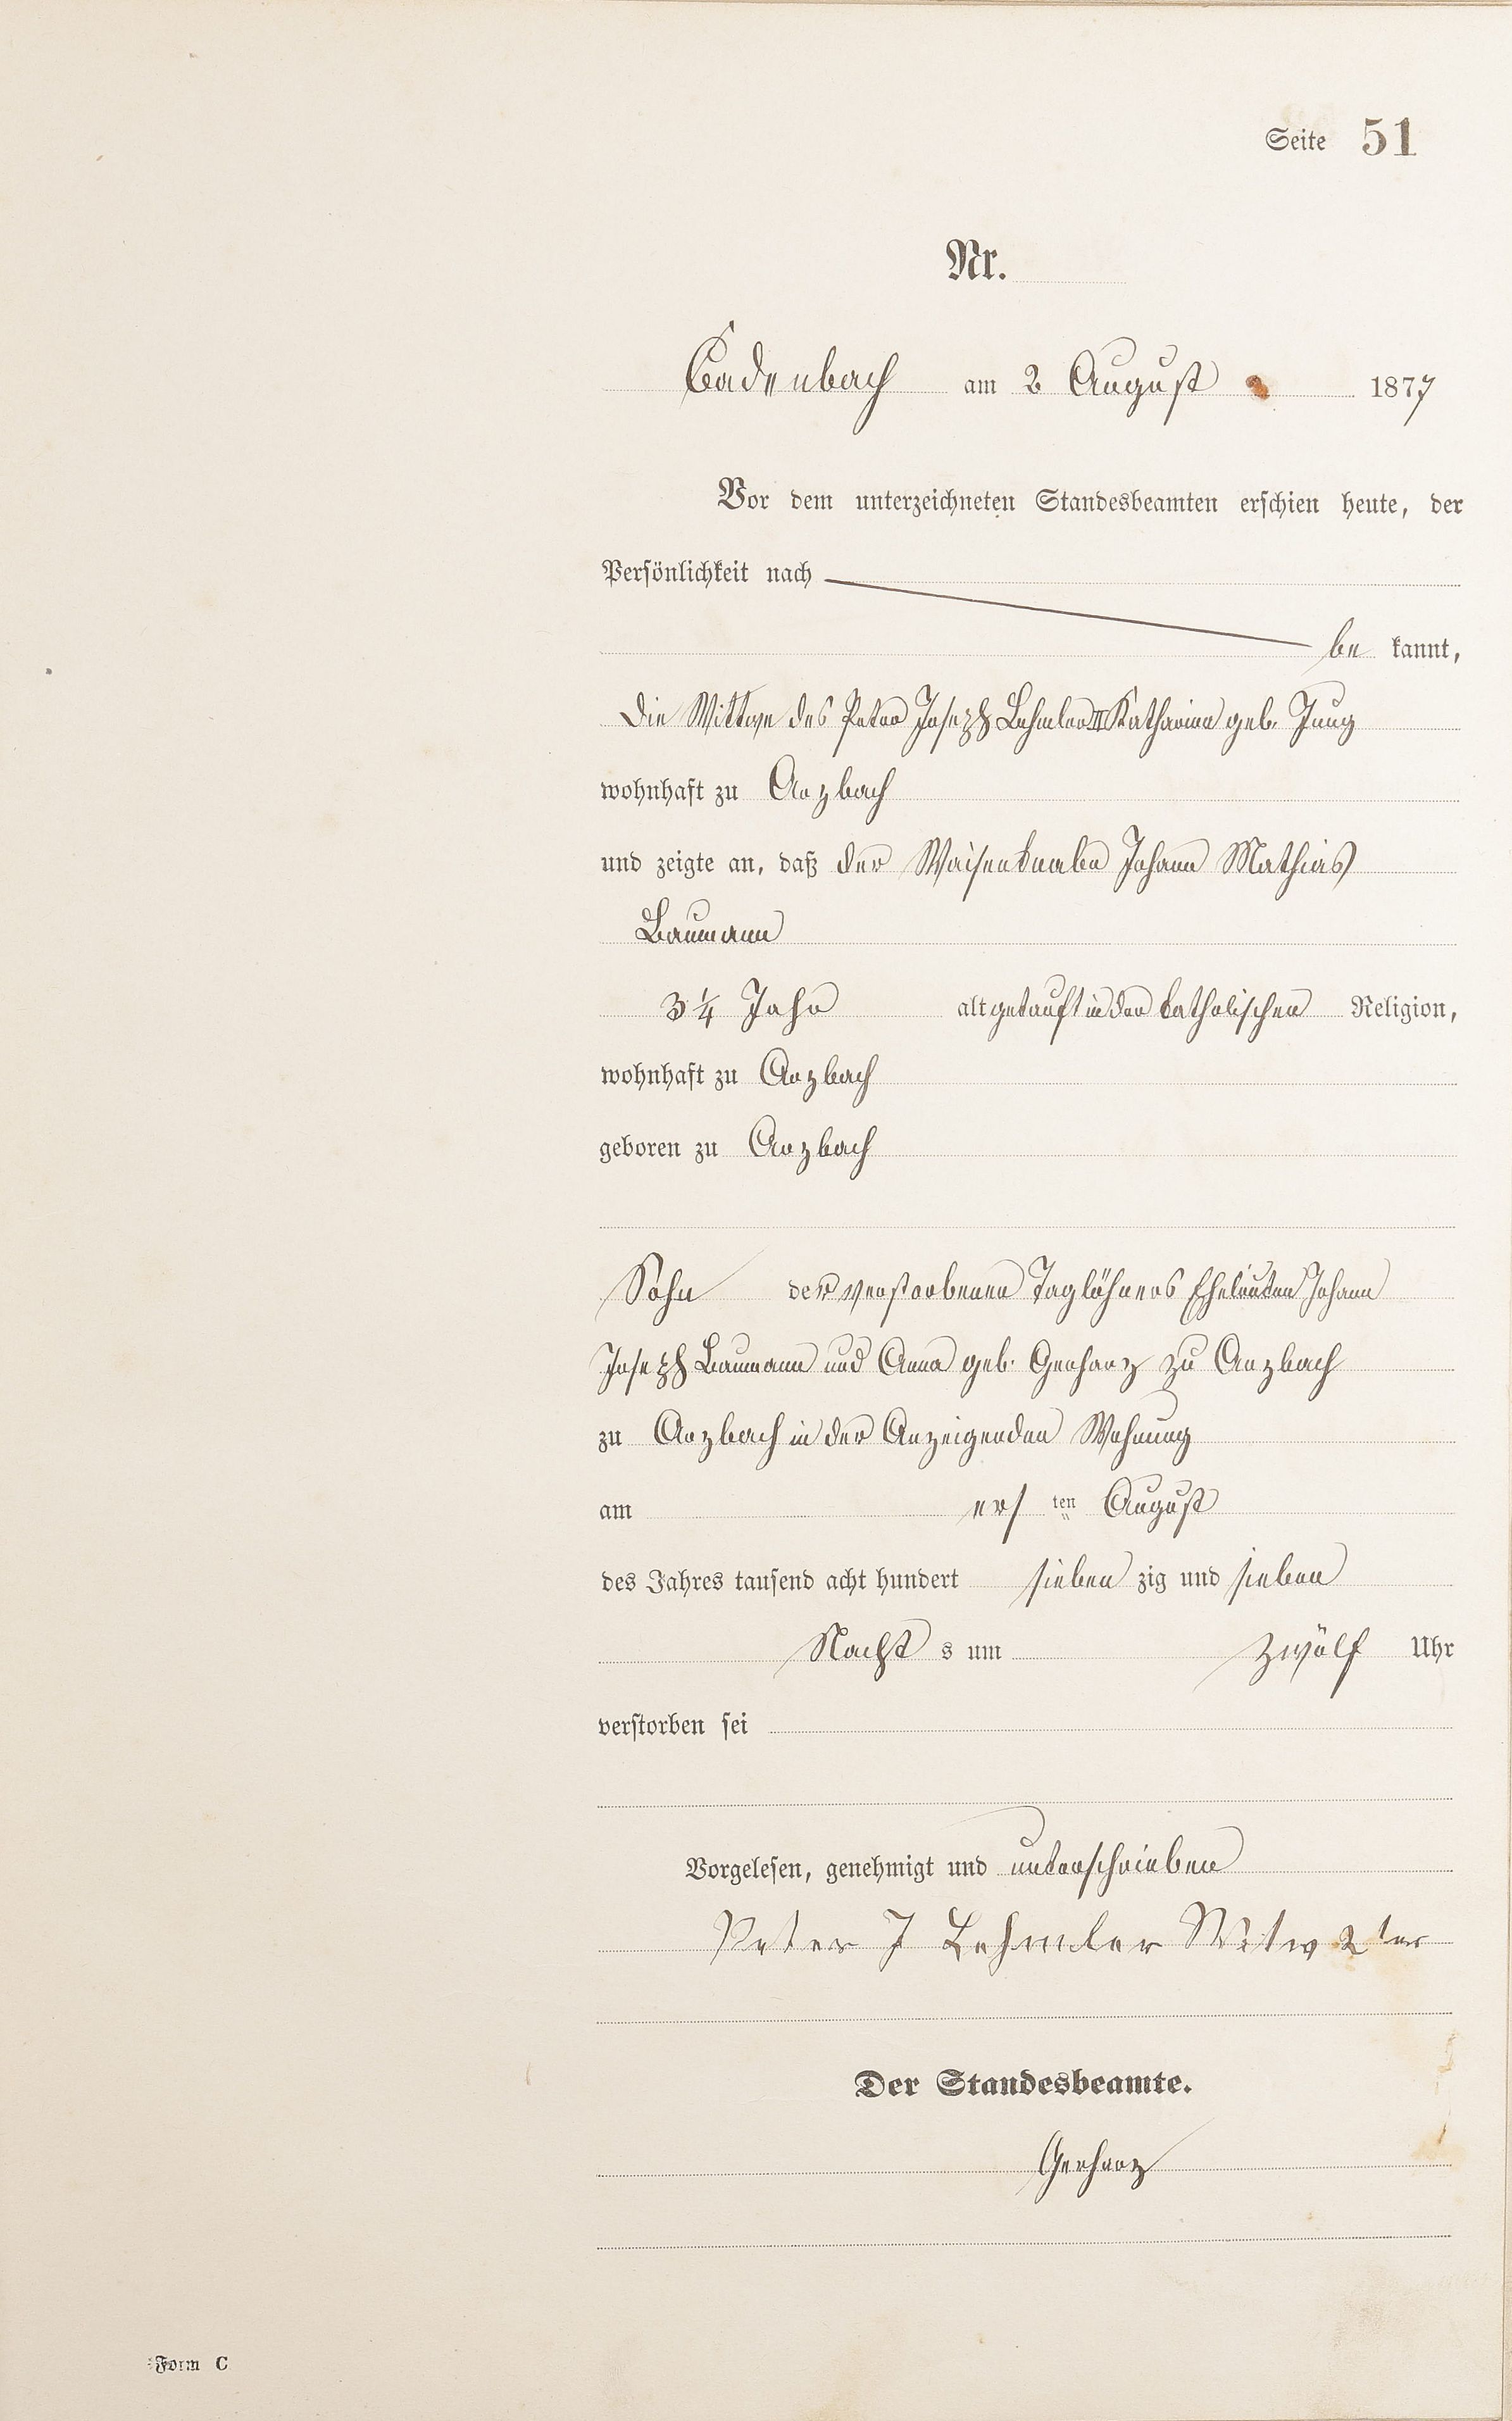 Seite 51
Nr.
Cadenbach am 2 August 1877
Vor dem unterzeichneten Standesbeamten erschien heute, der
Persönlichkeit nach
be kannt,
die Wittwe des Peter Joseph Lehmler II Katharina geb. Jung
wohnhaft zu Arzbach
und zeigte an, daß der Waisenknabe Johann Mathias
Baumann
3 1/4 Jahr alt getauft in der katholischen Religion,
wohnhaft zu Arzbach
geboren zu Arzbach
Sohn der verstorbenen Taglöhners Eheleuten Johann
Joseph Baumann und Anna geb. Gerharz zu Arzbach
zu Arzbach in der Anzeigenden Wohnung
am ers ten August
des Jahres tausend acht hundert sieben zig und sieben
Nacht s um zwölf Uhr
verstorben sei
Vorgelesen, genehmigt und unterschrieben
Peter J Lehmler Witw 2ter
Der Standesbeamte.
Gerharz
Form C